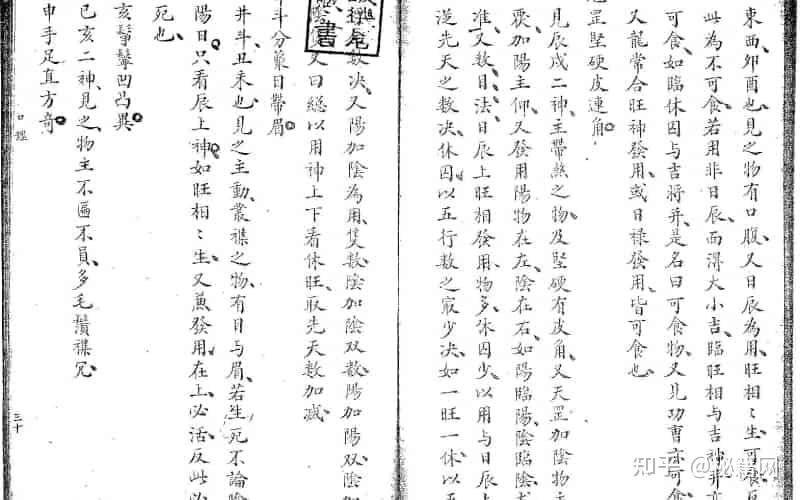 東西卯酉也見之物有口腹又日辰為用旺相〻生可食
此為不可食若用非日辰而得大小吉臨旺相与吉神并
可食如臨休囚与吉將并是名曰可食物又見功曹亦可食
又龍常合旺神發用或日祿發用皆可食也
罡堅硬皮連角
見辰戌二神主帶煞之物及堅硬有皮角又天罡加陰物主
覆加陽主仰又發用陽物在左陰在右如陽臨陽陰臨陰
准又數目法日辰上旺相發用物多休囚少以用与日辰上
逆先天之數决休囚以五行數之最少决如一旺一休以五
數决又陽加陰為用隻數陰加陰双數陽加陽双陰
又曰總以用神上下看休旺取先天數加减
斗分蒙日帶眉
井斗丑未也見之主動叢襍之物有目与眉若生死不論陰
陽日只看辰上神如旺相〻生又兼發用在上必活反此必
死也
亥髩鬡凹凸異
巳亥二神見之物主不匾不員多毛鬚襍冗
申手足直方奇
三十
知乎 @秘籍网